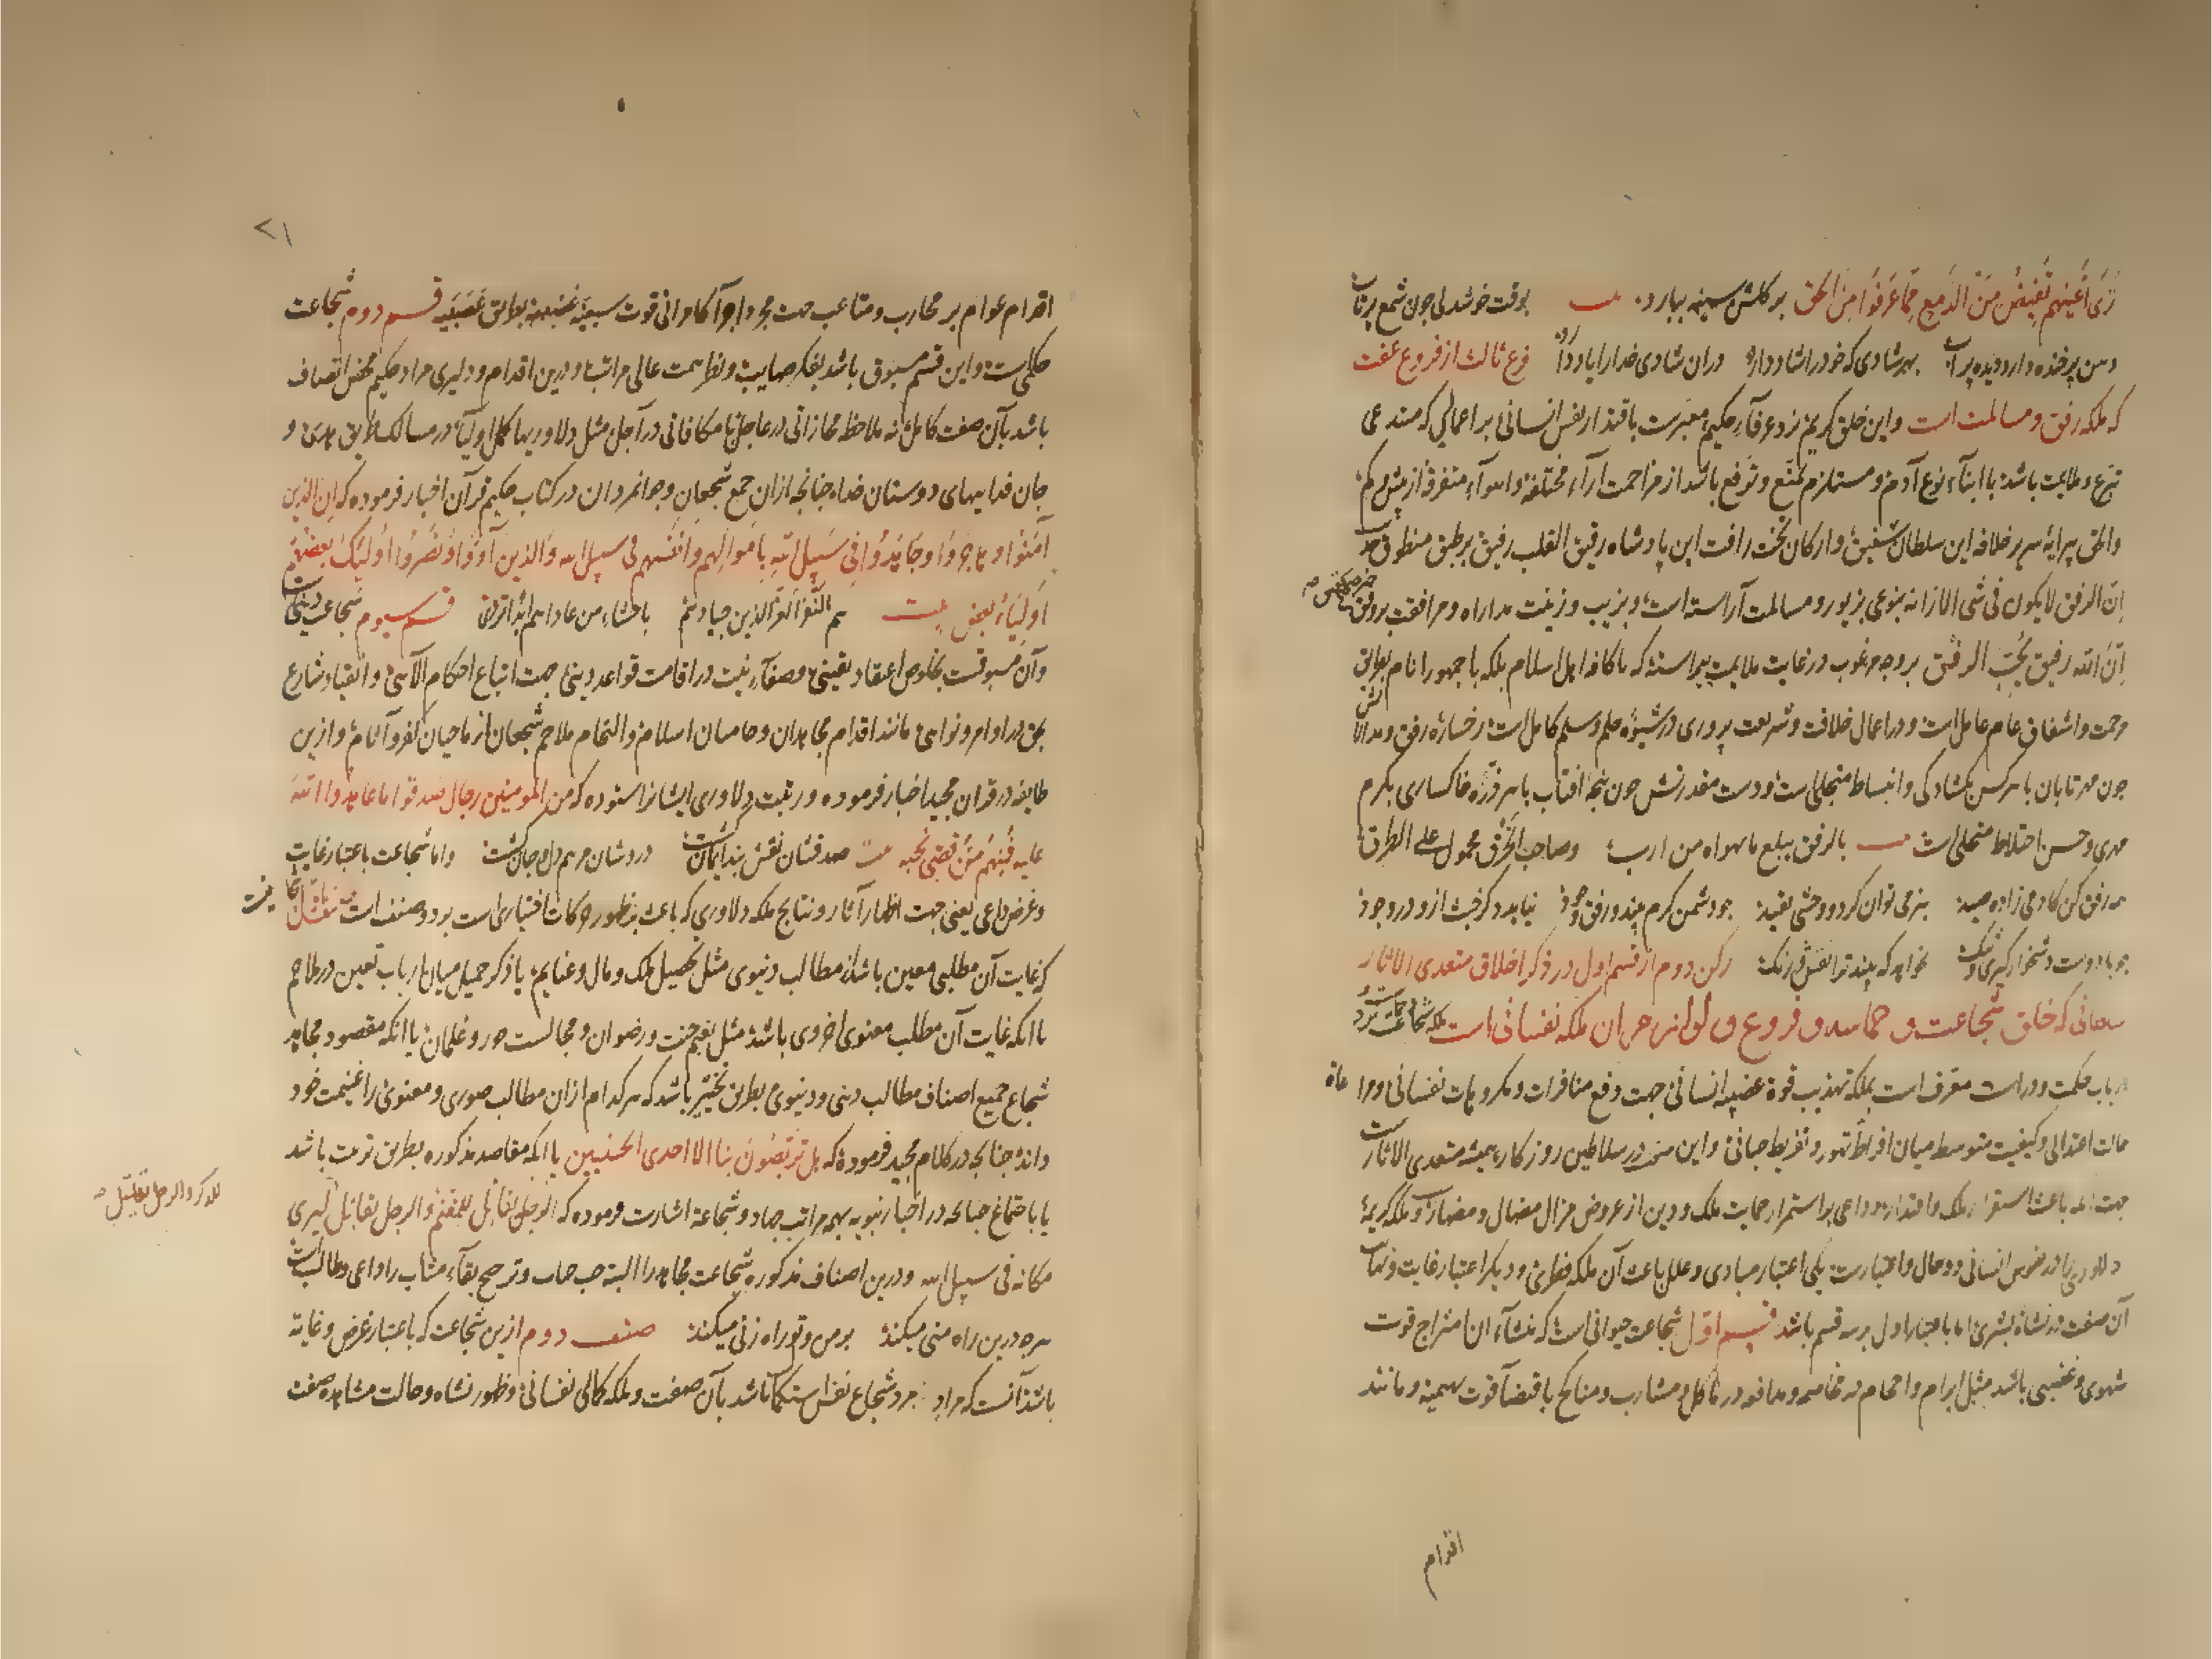 تَرَى أَعْيُنَهُمْ تَفِيضُ مِنَ الدَّمْعِ مِمَّا عَرَفُوا مِنَ الْحَقِّ بر گلشن سینه ببارد بوقت خوشدلی چون شمع پرتاب
دهن پرخنده دارد دیده پر آب بهر شادی که خود را شاد دارد در آن شادی خدا را یاد دارد فرع ثالث از فروع عفت
که ملکه رفق و مسالمت است و این خلق کریم نزد عرفآء حکیم معتبرست باقتدار نفس انسانی بر اعمالی که مستدعی
تبرع و ملایمت باشد با ابنآء نوع آدم و مستلزم تمنع و ترفع باشد از مزاحمت آراء مختلفه و اهوآء متفرقه از بیش و کم
والحق پیرایه سریر خلافه این سلطان شفیق و ارکان تخت رأفت این پادشاه رقیق القلب رفیق بر طبق منطوق
اِنّ الرفق لا یکون فی شی الا زانه بنوعی بزیور و مسالمت آراسته است و بزیب و زینت مداراه و مرافقت بر وفق
اِنَّ الله رفیق یُحِبّ الرفق بر وجه مرغوب در غایت ملایمت پیراسته که با کافه اهل اسلام بلکه با جمهور انام بطرایق
مرحمت و اشفاق عام عاملست و در اعمال خلافت و شریعت پروری در شیوه حلم و سلم کامل است رخساره رفق و مدارا
چون مهر تابان با هر کس بگشادگی و انبساط متجلی است و دست مقدرتش چون پنجه افتاب با هر ذرّه خاکساری بکرم
مهری و حسن اختلاط متحلی است بالرفق یبلغ ما یهواه من ارب و صاحب الخرق محمول علی الطرق
بنرمی توان کرد وحشی بقید چو دشمن کرم بیند و رفق وجود نیاید دگر خبث ازو در وجود
چو با دوست دشخوار گیری و تنگ نخواهد که بیند ترا نقش و رنگ رکن دوم از قسم اول در ذکر اخلاق متعدی الاثار
سلطانی که خلق شجاعت و حماسه و فروع و لوازم هر آن ملکه نفسانی است ملکه شجاعت نزد
ارباب حکمت و دراست معرف است بملکه تهذیب قوة غضبیه انسانی جهت دفع منافرات و مکروهات نفسانی و مراعاة
حالت اعتدالی و کیفیت متوسط میان افراط تهور و تفریط جبانی و این در سلاطین روزکار همیشه متعدی الاثار
جهت انکه باعث استقرار ملک و اقتدار و داعی بر استمرار حمایت ملک و دین از عروض و ملکه کریمه
دلاوری را در نفوس انسانی دو حال و اعتبارست یکی اعتبار مبادی و علل باعث آن ملکه فطری و دیگر اعتبار غایت و نهایت
آن صفت در نشاه بشری اما باعتبار اول بر سه قسم باشد قسم اول شجاعت حیوانی است که منشآء ان امتزاج قوت
شهوی و غضبی باشد مثل ابرام و اقحام در مخاصمه و مدافعه در مآکل و مشارب و مناکح باقتضآء قوت بهیمیه و مانند
اقدام
۷۱
اقدام عوام بر محارب و متاعب جهت مجرد اجرآء کامرانی قوت سبعیه غضبیه بعلایق عَصَبیَّه قسم دوم شجاعت
حکمی است و این قسم مسبوق باشد بفکر صایب و نظر همت عالی مراتب و درین اقدام و دلیری مراد حکیم محض اتصاف
باشد بآن صفت کامل نه ملاحظه مجازاتی در عاجل یا مکافاتی در آجل مثل دلاوریهاء کمل اولیآء در مسالک طریق هدی و
جان فداییهای دوستان خدا چنانچه ازان جمع شجعان و جوانمردان در کتاب حکیم قرآن اخبار فرموده که اِنّ الذین
آمَنُوا وَهَاجَرُوا وَجَاهَدُوا فِی سَبِیلِ اللّهِ بِاَموالِهِم وَ اَنفُسِهِم فی سبیل الله وَالذینَ آوَوْا وَ نَصَرُوا اُولئِکَ بَعضُهُم
اَولِیَاءُ بَعض بیت قسم سیوم شجاعت دینی است
وآن مسبوقست بخلوص اعتقاد یقینی و صفآء نیت در اقامت قواعد دینی جهت اتباع احکام الآهی و انقیاد شارع
بحق در اوامر و نواهی مانند اقدام مجاهدان و حامیان اسلام و التحام ملاحم شجعان از ماحیان کفر و آثام و ازین
طایفه در قرآن مجید اخبار فرموده و رتبت دلاوری ایشانرا ستوده که من المومنین رجال صدقوا ما عاهدوا اللّهَ
علیه فَمِنهُم مَّن قضی نَحبَه بیت صدقشان نقش بند ایمان است دردشان مرهم دل و جان است و اما شجاعت باعتبار غایت
و غرض داعی یعنی جهت اظهار آثار و نتایج ملکه دلاوری که باعث بر ظهور حرکات اختیاری است بر دو صنف است
که غایت آن مطلبی معین باشد از مطالب دنیوی مثل تحصیل ملک و مال و غنایم یا ذکر جمیل میان ارباب تعین در ملاحم
یا انکه غایت آن مطلب معنوی اخروی باشد مثل نعیم جنت و رضوان و مجالست حور و غلمان یا انکه مقصود مجاهد
شجاع جمیع اصناف مطالب دینی و دنیوی بطریق تخییر باشد که هر کدام ازان مطالب صوری و معنوی را غنیمت خود
داند چنانچه در کلام مجید فرموده که هل تربّصُونَ بنا الا احدی الحسنیین یا انکه مقاصد مذکوره بطریق ترتب باشد
یا باجتماع چنانچه در اخبار نبویه بهمه مراتب جهاد و شجاعة اشارت فرموده که الرجل یقاتل للمغنم والرجل یقاتل لیری
للذکر والرجل یقاتل
مکانه فی سبیل الله و درین اصناف مذکوره شجاعت مجاهد را البته حب حیات و ترجیح بقآء مثاب را داعی و طالب است
درین راه منی میکند بر من و تو راه زنی میکند صنف دوم ازین شجاعت که باعتبار غرض و غایة
باشد آنست که مراد مرد شجاع نفس استکمال باشد بآن صفت و ملکه کمالی نفسانی و ظهور نشاه و حالت مشابهه صفت